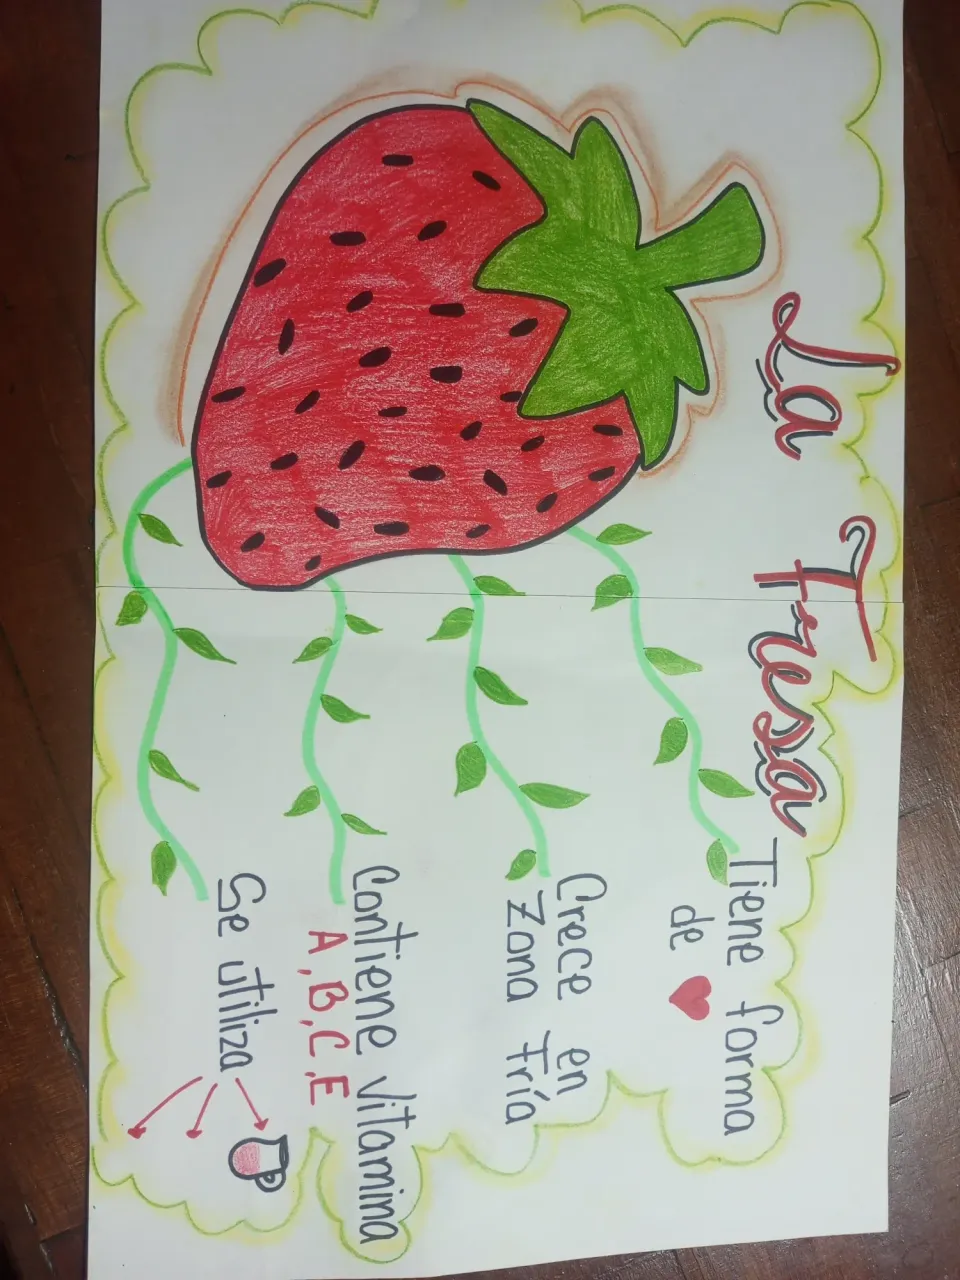 La Fresa
Tiene forma
de
Crece en
Zona fría
Contiene vitamina
A, B, C, E
Se utiliza